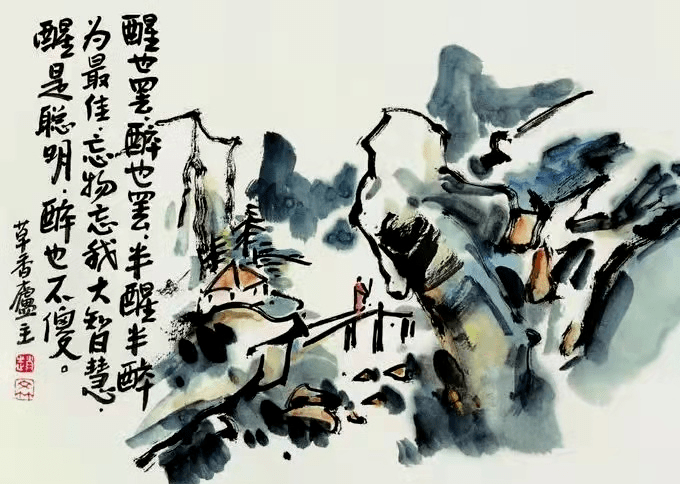 醒也罢，醉也罢，半醒半醉
为最佳，忘物忘我大智慧，
醒是聪明，醉也不傻。
草香庐主